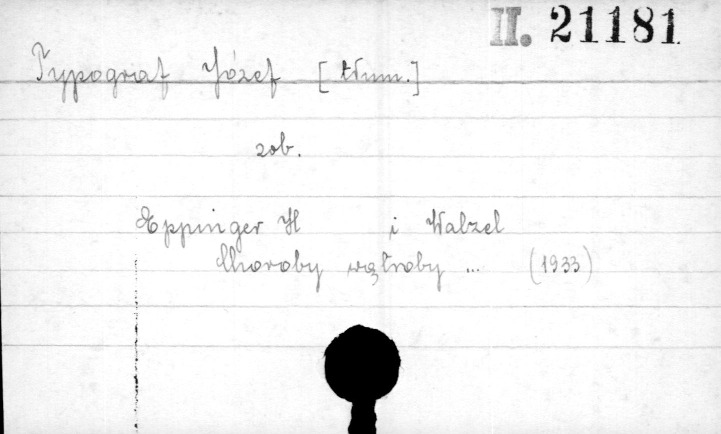 II. 21181
Typograf Józef [tłum.]
zob.
Eppinger H i Walzel
Choroby wątroby ... (1933)